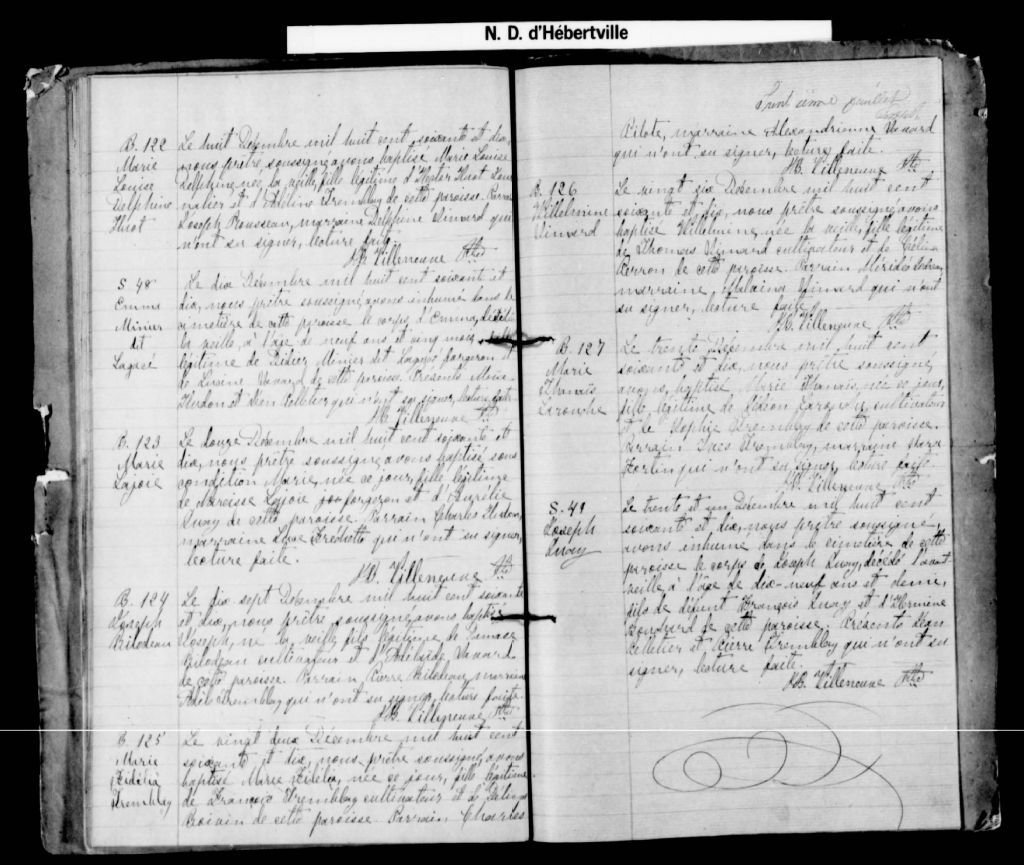 N. D. d'Hébertville
B. 122
Marie
Louise
Delphine
Huot
Le huit Décembre mil huit cent soixante et dix,
nous prêtre soussigné avons baptisé Marie Louise
Delphine, née la veille, fille légitime d' Huot
et d' Tremblay de cette paroisse. Parrain
Joseph Rousseau, marraine Delphine Simard qui
n'ont su signer, lecture faite.
JB. Villeneuve Ptre
S. 48
Emma
Minier
dit
Lagacé
Le dix Décembre mil huit cent soixante et
dix, nous prêtre soussigné avons inhumé dans le
cimetière de cette paroisse le corps d'Emma, décédée
la veille, à l'âge de neuf ans et cinq mois, fille
légitime de Didier Minier dit Lagacé forgeron et
de de cette paroisse. Présents
Hudon et Pelletier qui n'ont su signer, lecture faite
JB. Villeneuve Ptre
B. 123
Marie
Lajoie
Le douze Décembre mil huit cent soixante et
dix, nous prêtre soussigné avons baptisé sous
condition Marie, née ce jour, fille légitime
de Narcisse Lajoie forgeron et d'Aurélie
de cette paroisse. Parrain Charles Hudon,
marraine qui n'ont su signer,
lecture faite.
JB. Villeneuve Ptre
B. 124
Joseph
Bilodeau
Le dix sept Décembre mil huit cent soixante
et dix, nous prêtre soussigné avons baptisé
Joseph, né la veille, fils légitime de Damase
Bilodeau cultivateur et d'Adélaïde
de cette paroisse. Parrain, Pierre Bilodeau, marraine
Adèle Tremblay qui n'ont su signer, lecture faite.
JB. Villeneuve Ptre
B. 125
Marie
Fidélia
Tremblay
Le vingt deux Décembre mil huit cent
soixante et dix, nous prêtre soussigné avons
baptisé Marie Fidélia, née ce jour, fille légitime
de François Tremblay cultivateur et de
Boivin de cette paroisse. Parrain, Charles
feuillet
Pilote, marraine Alexandrienne
qui n'ont su signer, lecture faite.
JB. Villeneuve Ptre
B. 126
Willelmine
Simard
Le vingt six Décembre mil huit cent
soixante et dix, nous prêtre soussigné avons
baptisé Willelmine, née la veille, fille légitime
de Thomas Simard cultivateur et de
Perron de cette paroisse. Parrain
marraine, Simard qui n'ont
su signer, lecture faite.
JB. Villeneuve Ptre
B. 127
Marie
Thanaïs
Larouche
Le trente Décembre mil huit cent
soixante et dix, nous prêtre soussigné
avons baptisé Marie Thanaïs, née ce jour,
fille légitime de Larouche cultivateur
et de Sophie Tremblay de cette paroisse.
Parrain Tremblay, marraine
Fortin qui n'ont su signer, lecture faite.
JB. Villeneuve Ptre
S. 49
Joseph
Le trente et un Décembre mil huit cent
soixante et dix, nous prêtre soussigné
avons inhumé dans le cimetière de cette
paroisse le corps de Joseph décédé l'avant
veille, à l'âge de dix-neuf ans et demi,
fils de défunt François et d'Hermine
Bouchard de cette paroisse. Présents
Pelletier et Pierre Tremblay qui n'ont su
signer, lecture faite.
JB. Villeneuve Ptre